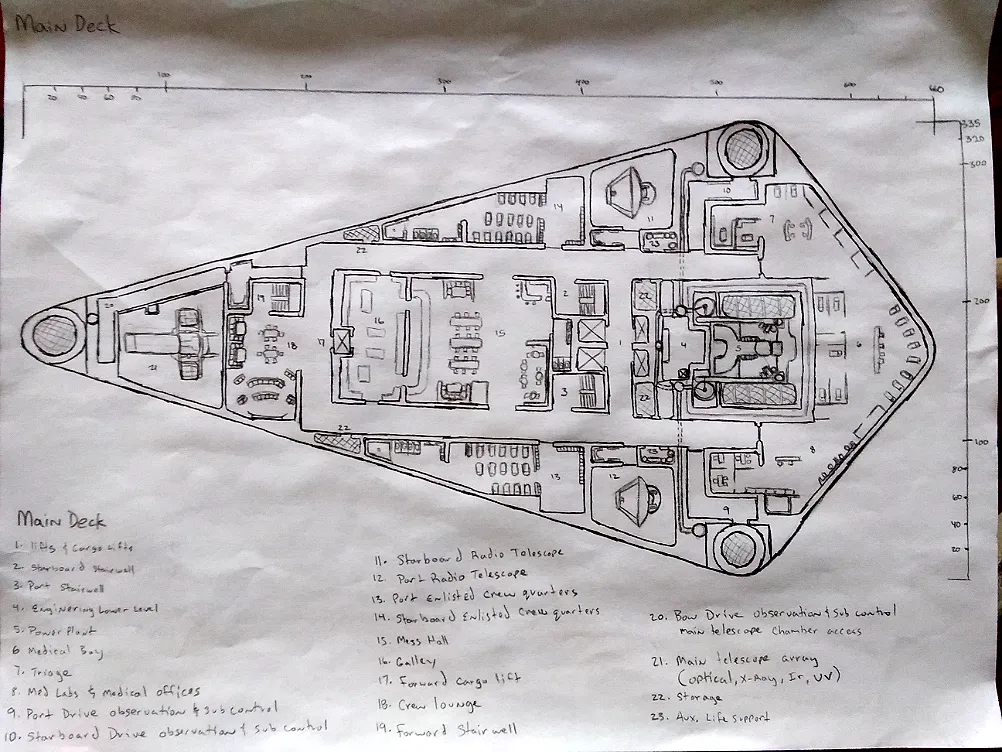 Main Deck
100 200 300 400 500 600
20 40 60 70
335
320
300
200
100
80
60
40
20
10
7
14
11
23
22
20
19
2
22
16
15
17
18
1
4
5
6
21
3
22
22
23
8
13
12
9
Main Deck
1. lifts & Cargo lifts
2. Starboard Stairwell
3. Port Stairwell
4. Engineering Lower Level
5. Power Plant
6 Medical Bay
7. Triage
8. Med Labs & Medical offices
9. Port Drive observation & Sub control
10. Starboard Drive observation & Sub control
11. Starboard Radio Telescope
12. Port Radio Telescope
13. Port Enlisted Crew quarters
14. Starboard Enlisted Crew quarters
15. Mess Hall
16. Galley
17. Forward cargo lift
18. Crew lounge
19. Forward Stairwell
20. Bow Drive observation & Sub control
main telescope Chamber access
21. Main telescope array
(optical, X-Ray, Ir, UV)
22. Storage
23. Aux. Life Support